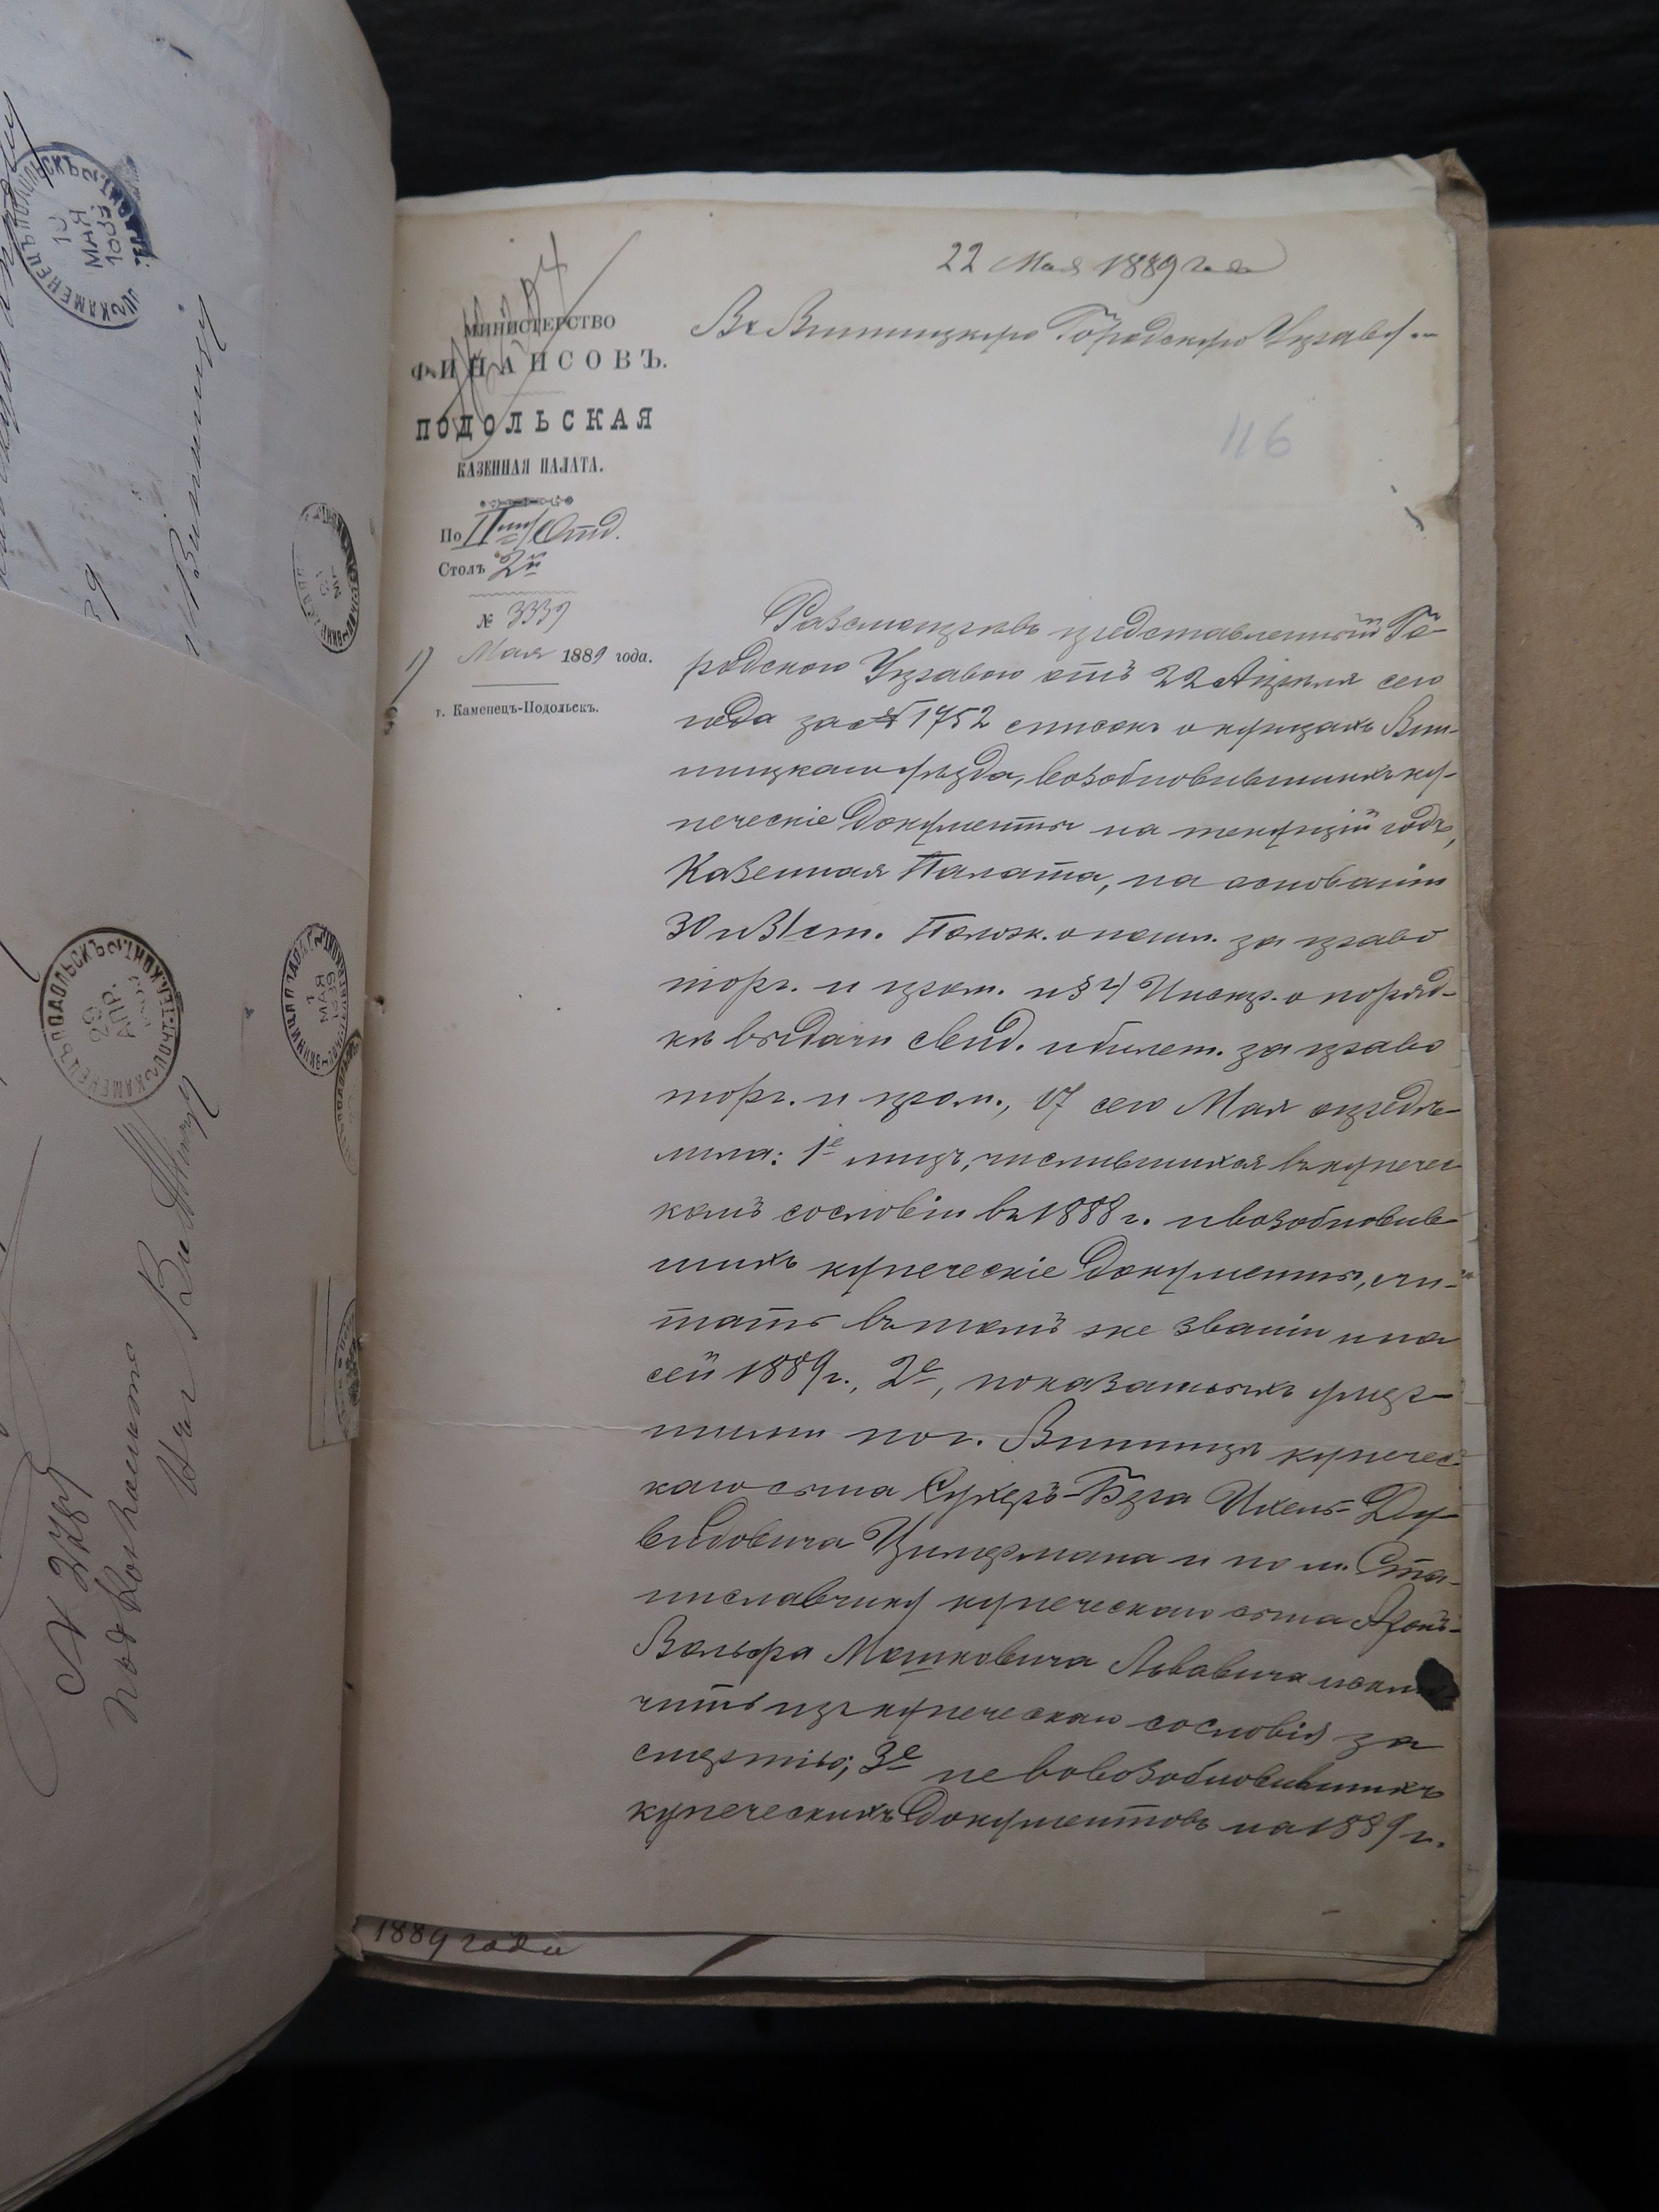 22 Мая 1889 года
Въ Винницкую Городскую Управу.
116
МИНИСТЕРСТВО
ФИНАНСОВЪ.
ПОДОЛЬСКАЯ
КАЗЕННАЯ ПАЛАТА.
По II Отд.
Столъ 2й
№ 3339
17 Мая 1889 года.
г. Каменецъ-Подольскъ.
Разсмотрѣвъ представленный Го-
родскою Управою отъ 22 Апрѣля сего
года за № 1752 списокъ о купцахъ Вин-
ницкаго уѣзда, возобновившихъ ку-
печескіе документы на текущій годъ,
Казенная Палата, на основаніи
30 и 31 ст. Полож. о пошл. за право
торг. и пром. и § 4 Инстр. о поряд-
кѣ выдачи свид. и билет. за право
торг. и пром., 17 сего Мая опредѣ-
лила: 1е лицъ, числившихся въ купечес
комъ сословіи въ 1888 г. и возобновив-
шихъ купеческіе документы, счи-
тать въ томъ же званіи и на
сей 1889 г., 2е, показанныхъ умер-
шими по г. Винницѣ купечес-
каго сына Сухеръ-Бера Ихель-Ду-
видовича Цимермана и по м. Ста-
ниславчику купеческаго сына Аронъ-
Вольфа Мошковича Львовича исклю-
чить изъ купеческаго сословія за
смертію; 3е не возобновившихъ
купеческихъ документовъ на 1889 г.
1889 года
КАМЕНЕЦЪ ПОДОЛЬСКЪ
МАЯ
КАМЕНЕЦЪ ПОДОЛЬСКЪ
29
АПР.
ВИННИЦА
1
МАЯ
1889